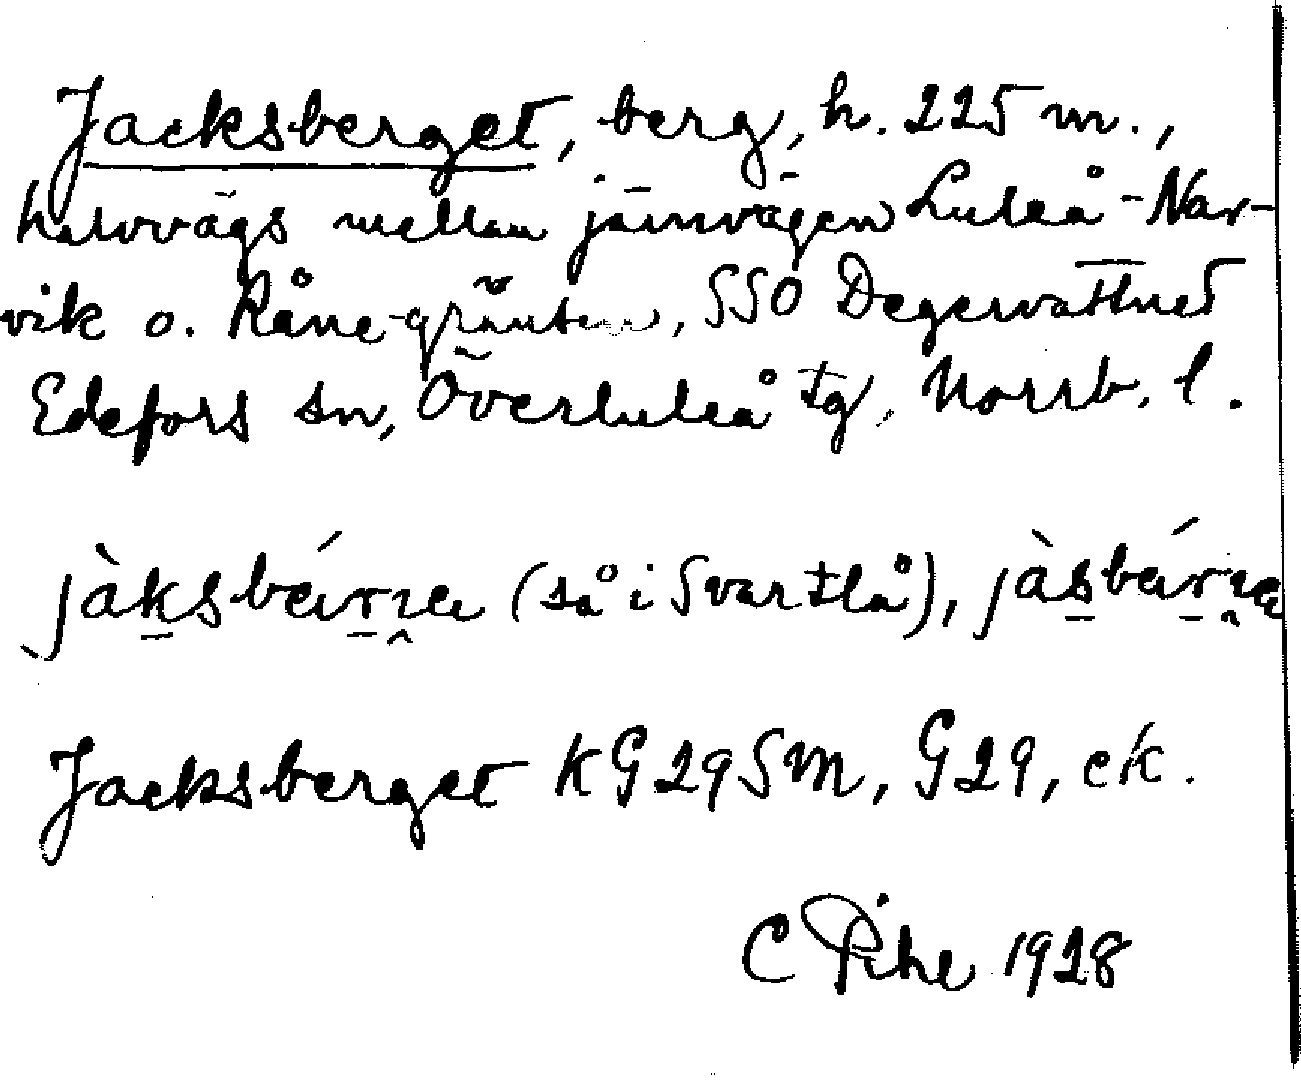 Jacksberget, berg, h. 225 m.,
halvvägs mellan järnvägen Luleå-Nar-
vik o. Råne-gränsen, SSO Degervattnet
Edefors sn, Överluleå tg, Norrb. l.
jàksbǽrɪɐ (så i Svartlå), jàsbǽrɪɐ
Jacksberget KG29SM, G29, ek.
C Pihl 1928